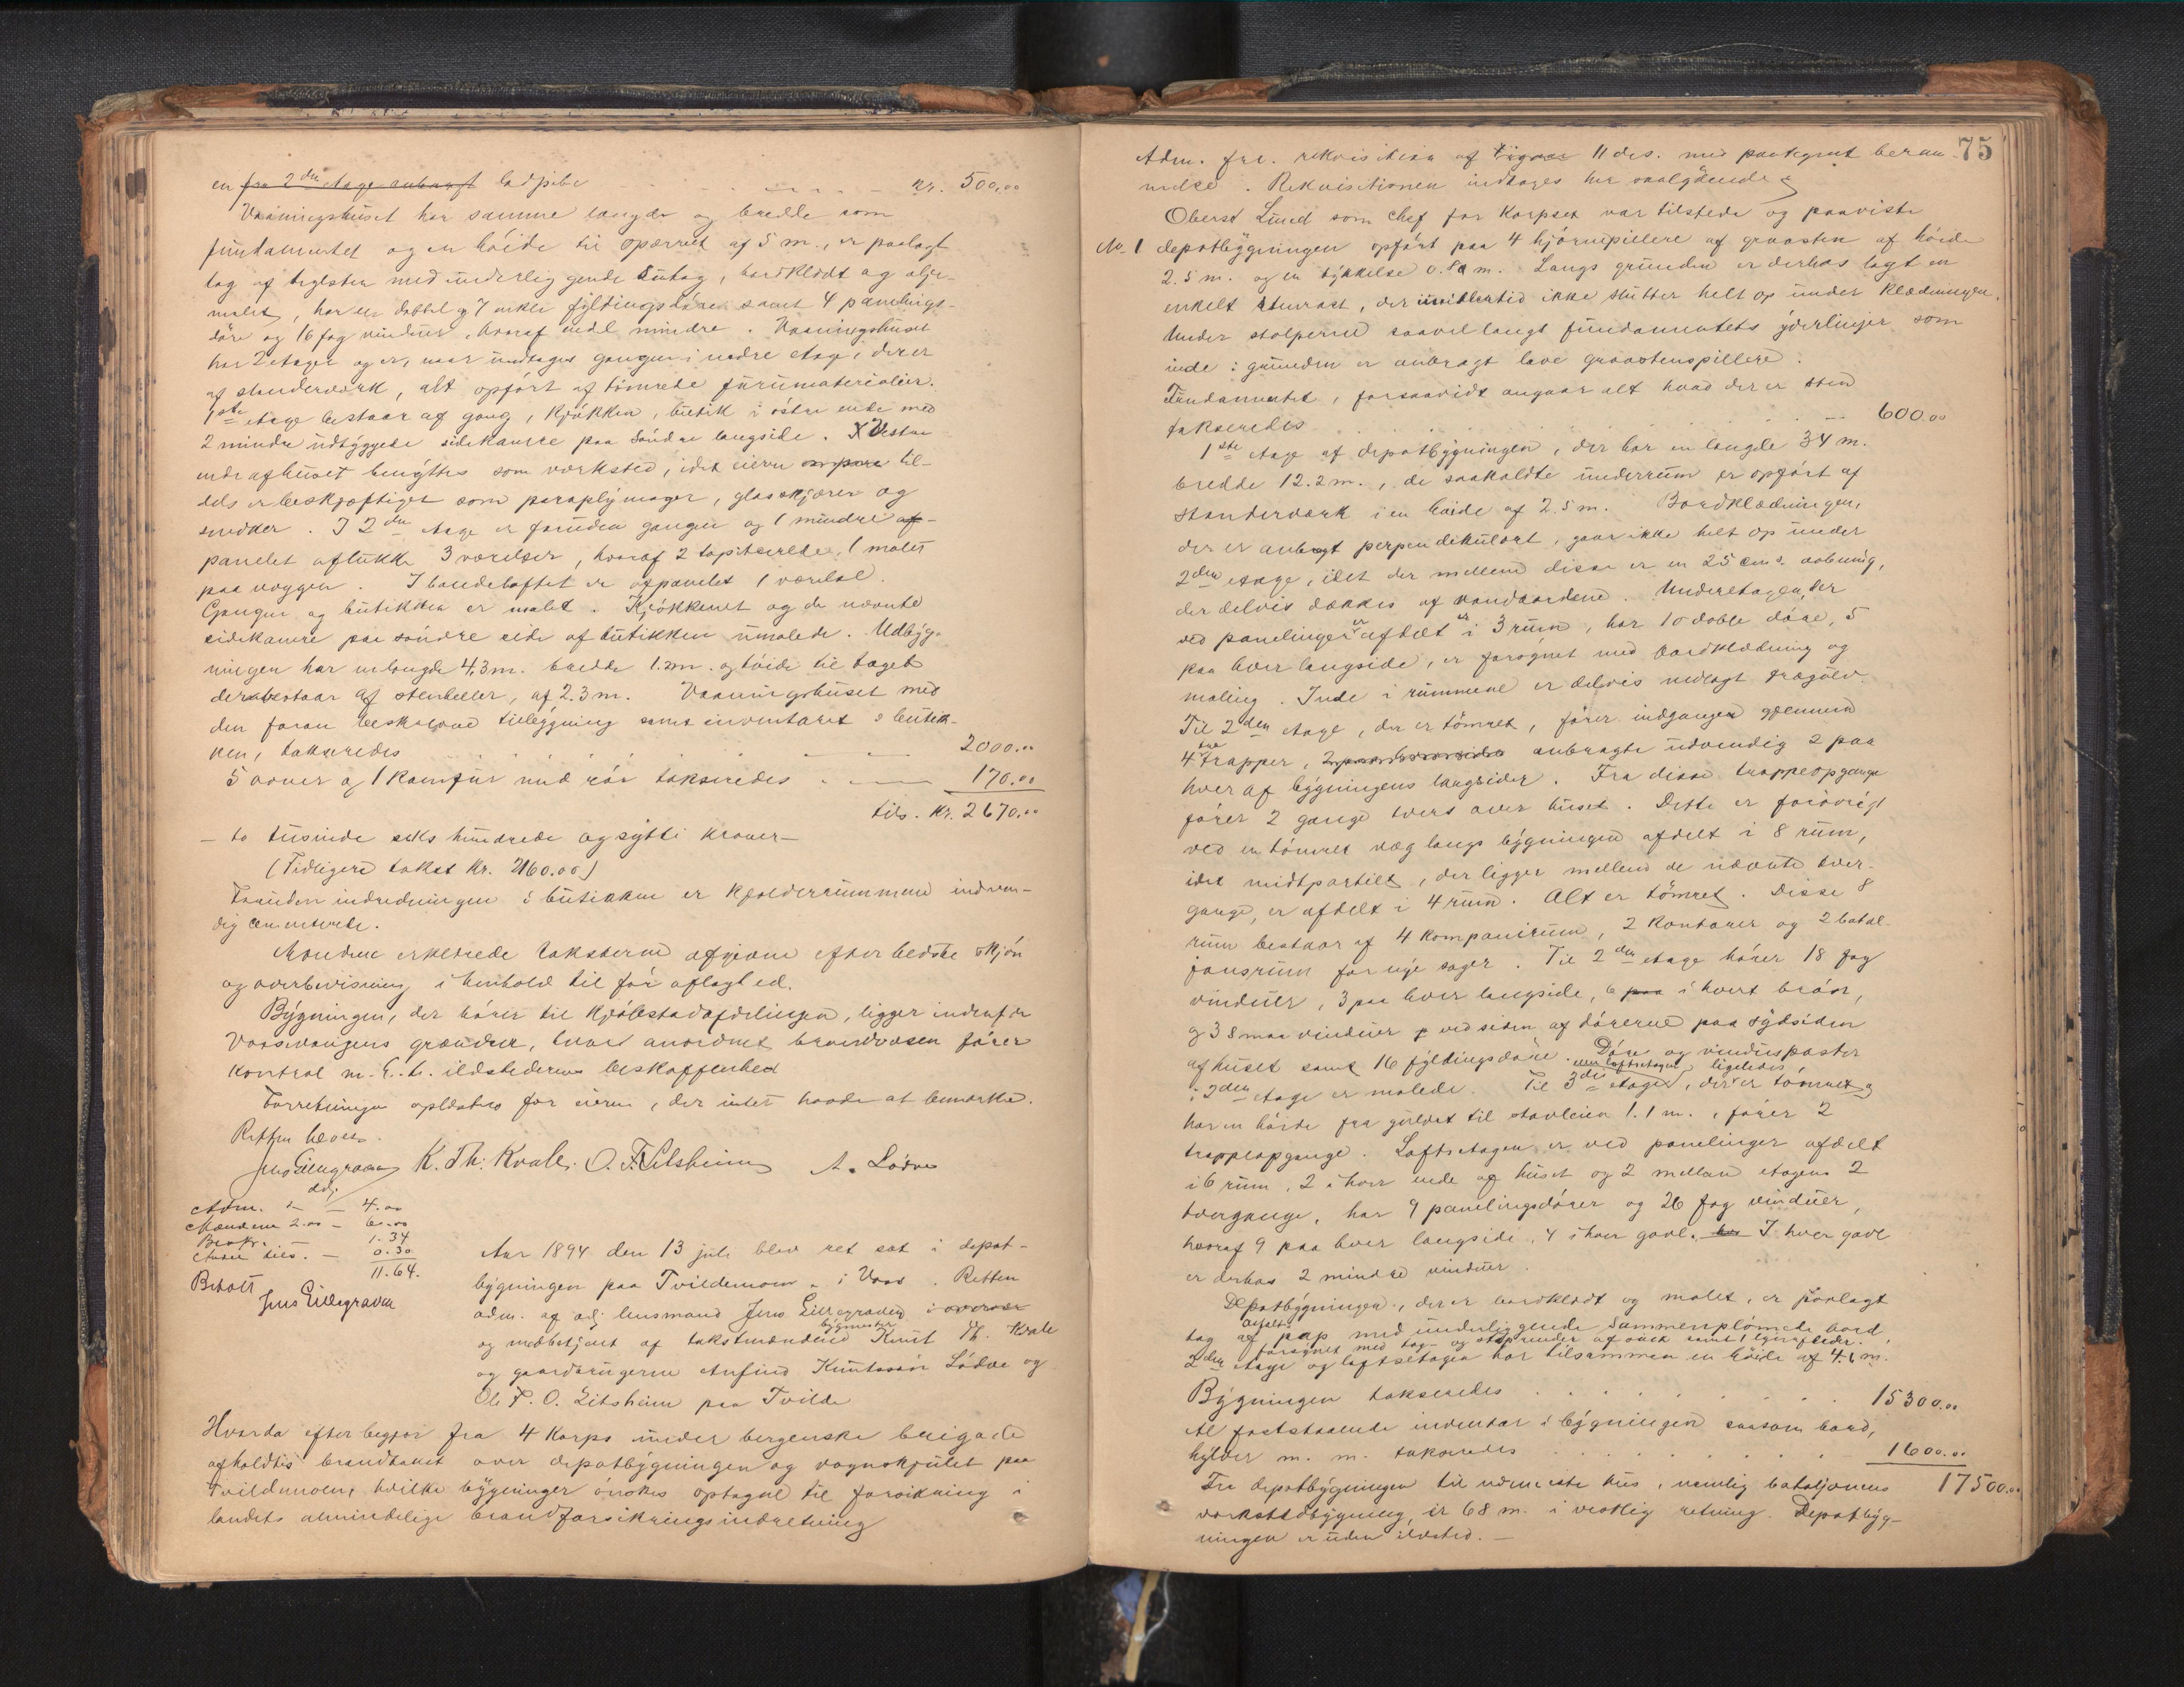 en fra 2den etage anbragt ladpibe kr. 500,00
Vaaningshuset har samme længde og bredde som
fundamentet og en höide til opærret af 5 m., er paalagt
tag af teglsten med underliggende sutag, bordklædt og olje-
malet, har en dobbel og 7 enkle fyldingsdöre samt 4 panelings-
döre og 16 fag vinduer, hvoraf endel mindre. Vaaningshuset
har 2 etager og er, naar undtages gangen i nedre etage, der er
af standerværk, alt opført af tömrede furumaterialier.
1ste etage bestaar af gang, kjøkken, butik i östre ende med
2 mindre udbyggede sidekamre paa Söndre langside. Vestre
ende af huset benyttes som værksted, idet eieren til-
dels er beskjæftiget som paraplymager, glasskjærer og
snedker. I 2den etage er foruden gangen og 1 mindre af-
panelet aflukke 3 værelser, hvoraf 2 tapetserede, 1 malet
paa væggen. I bandeloftet er afpanelet 1 værelse.
Gangen og butikken er malet. Kjøkkenet og de nævnte
sidekamre paa söndre side af butikken umalede. Udbyg-
ningen har en længde 4,3 m. bredde 1.2m. og höide til taget
der bestaar af stenheller, af 2.3 m. Vaaningshuset med
den foran beskrevne tilbygning samt inventaret i butik-
ken, takseredes 2000.00
5 ovner og 1 komfur med rör takseredes 170.00
tils. kr. 2670.00
— to tusinde seks hundrede og sytti kroner —
(Tidligere takst kr. 2160.00)
Foruden indredningen i butikken er kjelderrummene indven-
dig cementerede.
Mændene erklærede taksterne afgivne efter bedste skjön
og overbevisning i henhold til för aflagt ed.
Bygningen, der hörer til kjöbstadafdelingen, ligger indenfor
Vossevangens grændser, hvor anordnet brandvæsen förer
kontrol m. h. t. ildstedernes beskaffenhed
Forretningen oplæstes for eieren, der intet havde at bemærke.
Retten hævet.
Jens Lillegraven K. Th. Kvale. O. F. Litsheim A. Lödve
adj.
Adm. 4.00
Mændene 2.00 — 6.00
1.34
tils. — 0.30
11.64.
Betalt
Jens Lillegraven
Aar 1894 den 13 juli blev ret sat i depot-
bygningen paa Tvildemoen i Voss. Retten
adm. af adj. lensmand Jens Lillegraven i overvær
og medbetjent af takstmændene bygmester Knut Th. Kvale
og gaardbrugerne Anfind Knutssön Lödve og
Ole F. O. Litsheim paa Tvilde
Hvorda efter begjær fra 4 Korps under bergenske brigade
afholdtes brandtakst over depotbygningen og vognskjulet paa
Tvildemoen, hvilke bygninger önskes optagne til forsikring i
landets almindelige brandforsikringsindretning
75
Adm. frl. rekvisition af 11 ds. med paategnet beram-
melse. Rekvisitionen indtages her saalydende
Oberst Lund som chef for Korpset var tilstede og paaviste
No. 1 depotbygningen opfört paa 4 hjörnepillere af graasten af höide
2.5 m. og en tykkelse 0.80 m. Langs grunden er derhos lagt en
enkelt stenrast, der imidlertid ikke slutter helt op under klædningen.
Under stolperne saavel langs fundamentets yderlinjer som
inde i grunden er anbragt lave graastenspillere.
Fundamentet, forsaavidt angaar alt hvad der er sten
takseredes 600.00
1ste etage af depotbygningen, der har en længde 34 m.
bredde 12.2 m., de saakaldte underrum er opfört af
standerværk i en höide af 2.5 m. Bordklædningen,
der er anbragt perpendikulært, gaar ikke helt op under
2den etage, idet der mellem disse er en 25 cm.s aabning,
der delvis dækkes af vandbordene. Underetagen, der
ved panelinger er afdelt i 3 rum, har 10 doble döre, 5
paa hver langside, er forsynet med bordklædning og
maling. Inde i rummene er delvis nedlagt trægulv.
Til 2den etage, der er tömret, förer indgangen gjennem
4 trapper, anbragte udvendig 2 paa
hver af bygningens langsider. Fra disse trappeopgange
förer 2 gange tvers over huset. Dette er forövrigt
ved en tömret væg langs bygningen afdelt i 8 rum,
idet midtpartiet, der ligger mellem de nævnte tver-
gange, er afdelt i 4 rum. Alt er tömret. Disse 8
rum bestaar af 4 kompanirum, 2 kontorer og 2 batal-
jonsrum for nye sager. Til 2den etage hörer 18 fag
vinduer, 3 paa hver langside, 6 paa i hvert bröst,
og 3 smaa vinduer ved siden af dörerne paa sydsiden
af huset samt 16 fyldingsdöre. Döre og vinduesposter
i 2den etage er malede. Til 3die etage, eller loftsetagen, der ligeledes er tömret og
har en höide fra gulvet til stavleien 1.1 m., förer 2
trappeopgange. Loftsetagen er ved panelinger afdelt
i 6 rum, 2 i hver ende af huset og 2 mellem etagens 2
tvergange, har 9 panelingsdörer og 26 fag vinduer,
hvoraf 9 paa hver langside, 4 i hver gavl. I hver gavl
er derhos 2 mindre vinduer.
Depotbygningen, der er bordklædt og malet, er paalagt
tag af asfaltpap med underliggende sammenplöiede bord,
forsynet med tag- og stuprender af zink samt 1 lynafleder.
2den etage og loftsetagen har tilsammen en höide af 4.6 m.
Bygningen takseredes 15300.00
Al faststaaende inventar i bygningen saasom bord,
hylder m. m. takseredes 1600.00
Fra depotbygningen til nærmeste hus, nemlig bataljonens 17500.00
værkstedbygning, er 68 m. i vestlig retning. Depotbyg-
ningen er uden ildsted. —